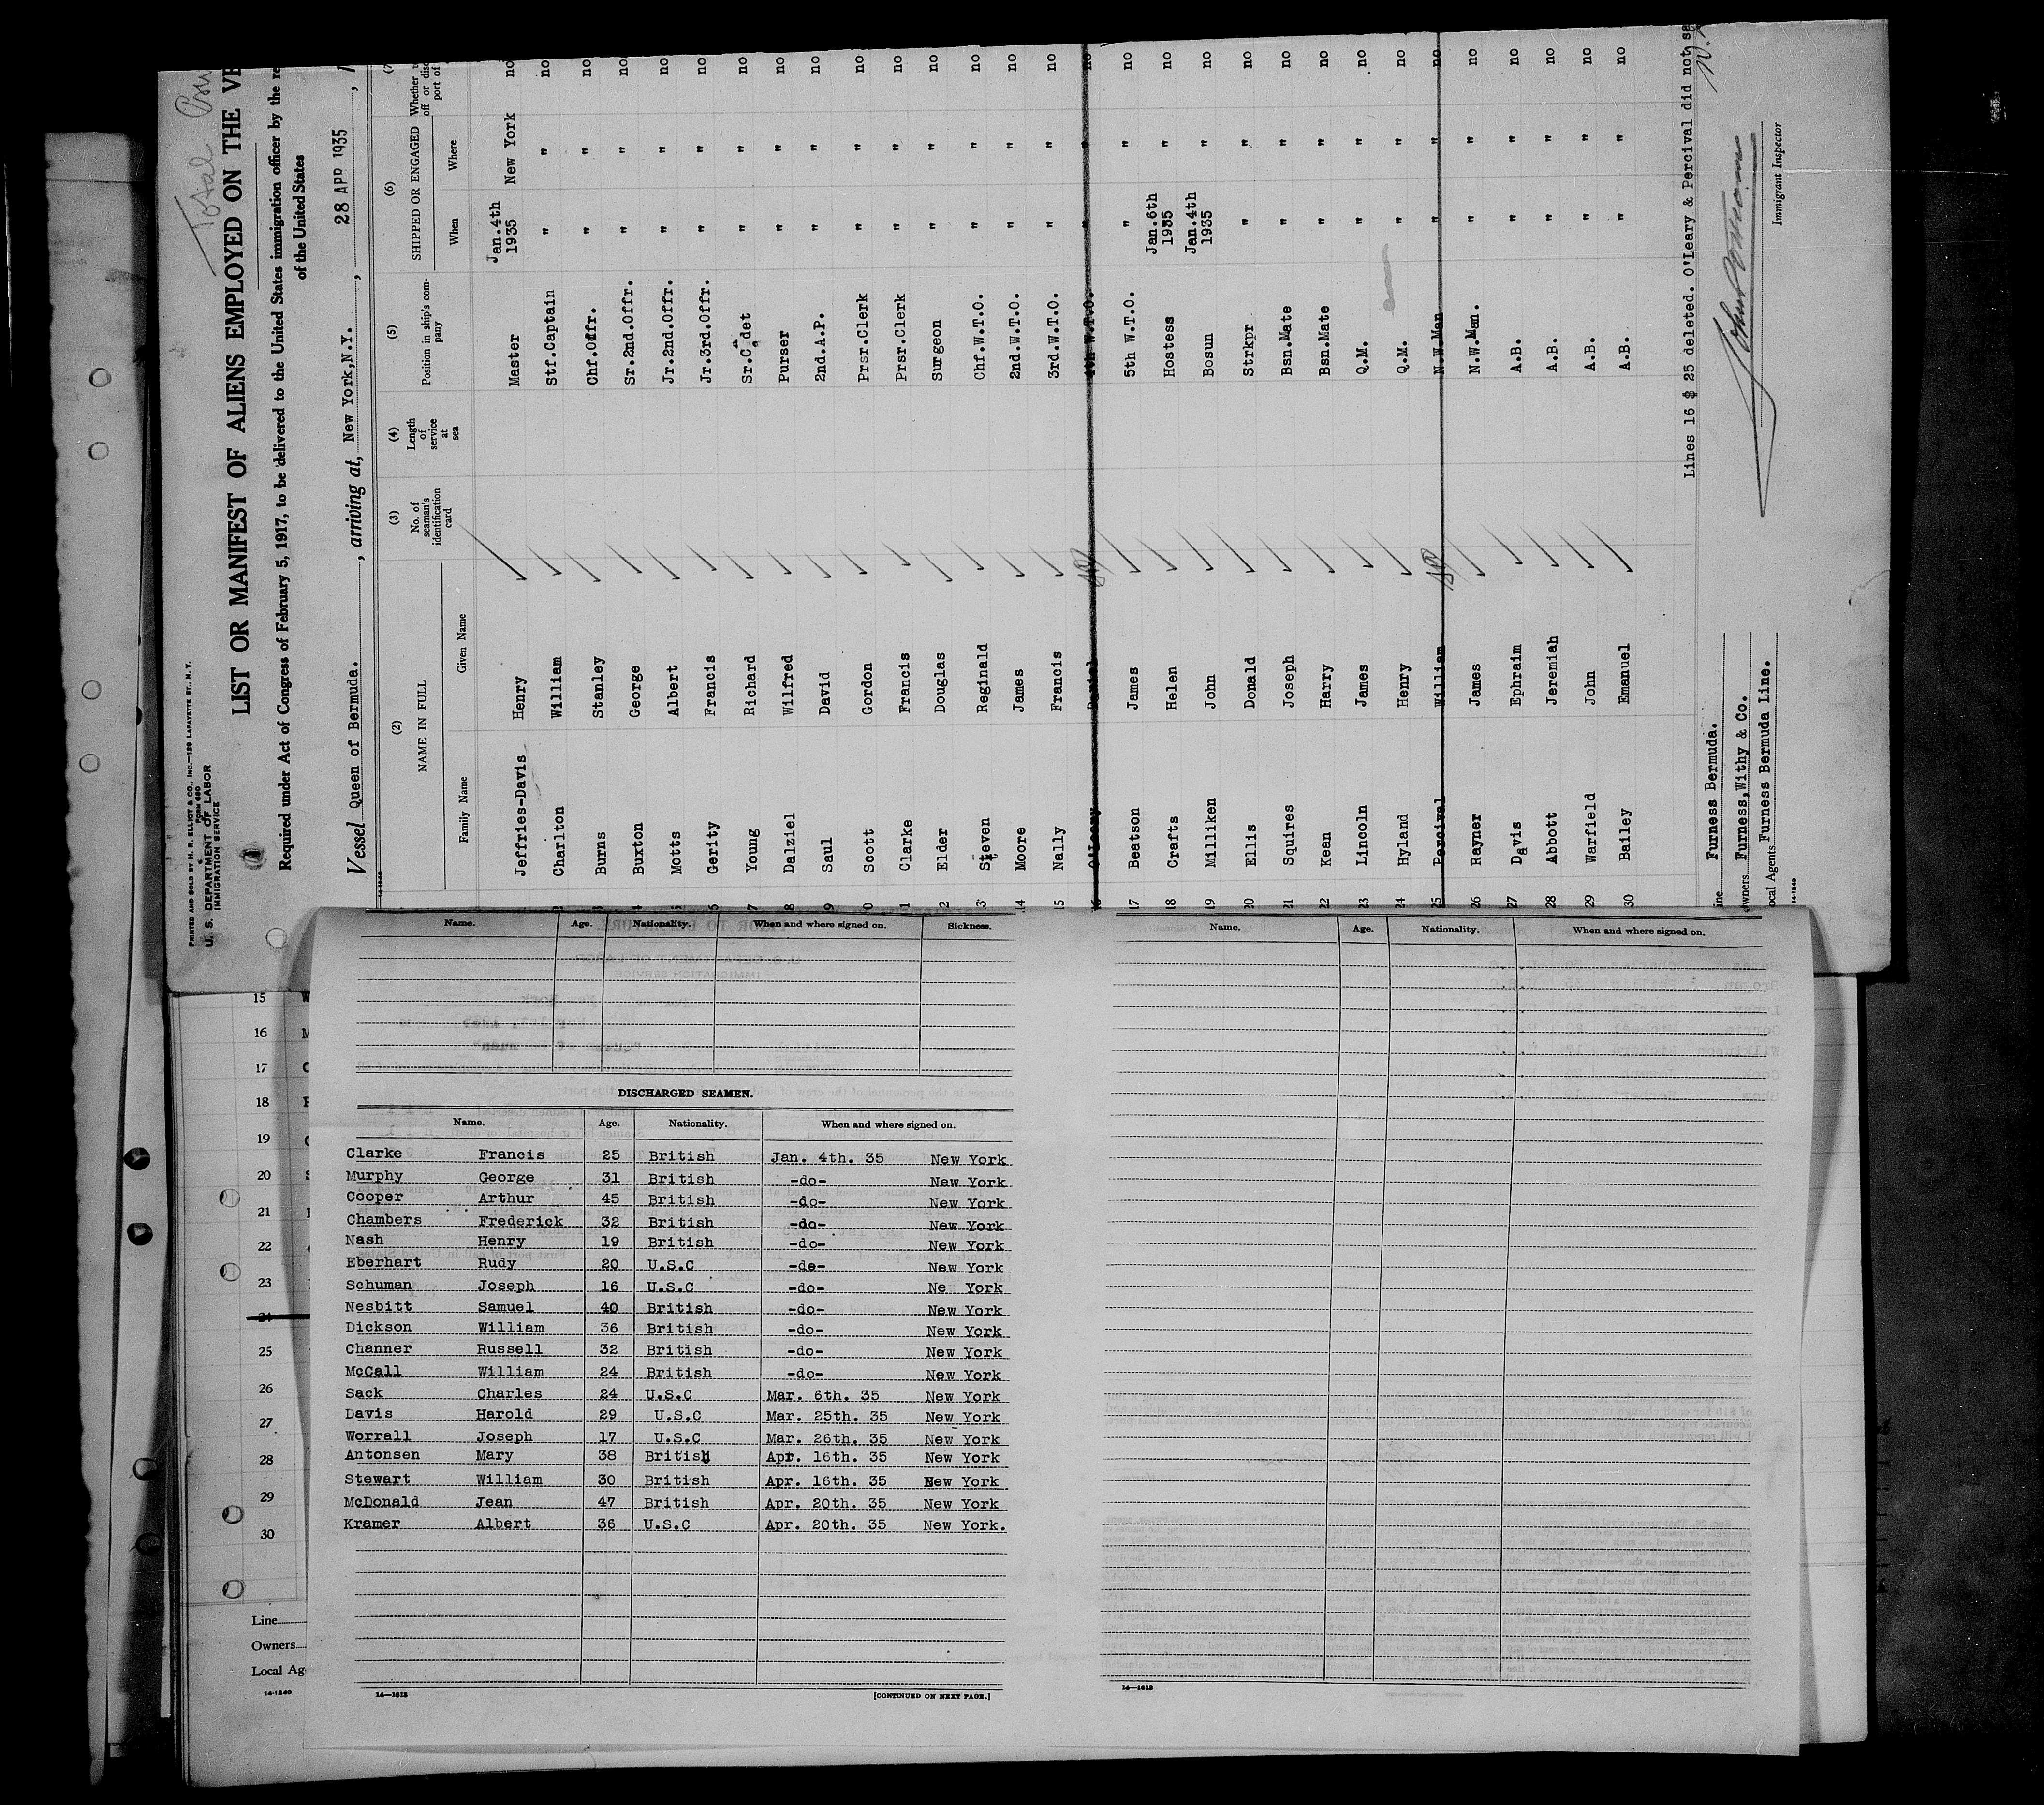 Total
PRINTED AND SOLD BY H. R. ELLIOT & CO., INC.—129 LAFAYETTE ST., N. Y.
FORM 680
U. S. DEPARTMENT OF LABOR
IMMIGRATION SERVICE
LIST OR MANIFEST OF ALIENS EMPLOYED ON THE VE
Required under Act of Congress of February 5, 1917, to be delivered to the United States immigration officer by the re
of the United States
Vessel Queen of Bermuda. , arriving at, New York,N.Y. , 28 APR 1935
14-1240
(2) (3) (4) (5) (6) (7)
NAME IN FULL No. of seaman's identification card Length of service at sea Position in ship's company SHIPPED OR ENGAGED Whether
off or disc
port of
Family Name Given Name When Where
Jeffries-Davis Henry Master Jan.4th 1935 New York no
2 Charlton William Stf.Captain " " no
3 Burns Stanley Chf.Offr. " " no
4 Buxton George Sr.2nd.Offr. " " no
5 Motts Albert Jr.2nd.Offr. " " no
6 Gerity Francis Jr.3rd.Offr. " " no
7 Young Richard Sr.Cadet " " no
8 Dalziel Wilfred Purser " " no
9 Saul David 2nd.A.P. " " no
0 Scott Gordon Prsr.Clerk " " no
1 Clarke Francis Prsr.Clerk " " no
2 Elder Douglas Surgeon " " no
3 Steven Reginald Chf.W.T.O. " " no
14 Moore James 2nd.W.T.O. " " no
15 Nally Francis 3rd.W.T.O. " " no
16 O'Leary Daniel 4th W.T.O. " " no
17 Beatson James 5th W.T.O. " " no
18 Crafts Helen Hostess Jan.6th 1935 " no
19 Milliken John Bosun Jan.4th 1935 " no
20 Ellis Donald Strkpr " " no
21 Squires Joseph Bsn.Mate " " no
22 Kean Harry Bsn.Mate " " no
23 Lincoln James Q.M. " " no
24 Hyland Henry Q.M. " " no
25 Percival William N.W.Man " " no
26 Rayner James N.W.Man. " " no
27 Davis Ephraim A.B. " " no
28 Abbott Jeremiah A.B. " " no
29 Warfield John A.B. " " no
30 Bailey Emanuel A.B. " " no
Lines 16 & 25 deleted. O'Leary & Percival did not sa
ine Furness Bermuda.
wners Furness,Withy & Co.
ocal Agents Furness Bermuda Line.
Immigrant Inspector
14-1240
Name. Age. Nationality. When and where signed on. Sickness.
DISCHARGED SEAMEN.
Name. Age. Nationality. When and where signed on.
Clarke Francis 25 British Jan. 4th. 35 New York
Murphy George 31 British -do- New York
Cooper Arthur 45 British -do- New York
Chambers Frederick 32 British -do- New York
Nash Henry 19 British -do- New York
Eberhart Rudy 20 U.S.C -de- New York
Schuman Joseph 16 U.S.C -do- Ne York
Nesbitt Samuel 40 British -do- New York
Dickson William 36 British -do- New York
Channer Russell 32 British -do- New York
McCall William 24 British -do- New York
Sack Charles 24 U.S.C Mar. 6th. 35 New York
Davis Harold 29 U.S.C Mar. 25th. 35 New York
Worrall Joseph 17 U.S.C Mar. 26th. 35 New York
Antonsen Mary 38 British Apr. 16th. 35 New York
Stewart William 30 British Apr. 16th. 35 New York
McDonald Jean 47 British Apr. 20th. 35 New York
Kramer Albert 36 U.S.C Apr. 20th. 35 New York.
14—1613 [CONTINUED ON NEXT PAGE.]
Name. Age. Nationality. When and where signed on.
14—1613
15 W
16 M
17
18
19
20 S
21
22
23
24
25
26
27
28
29
30
Line
Owners
Local Ag
14-1240